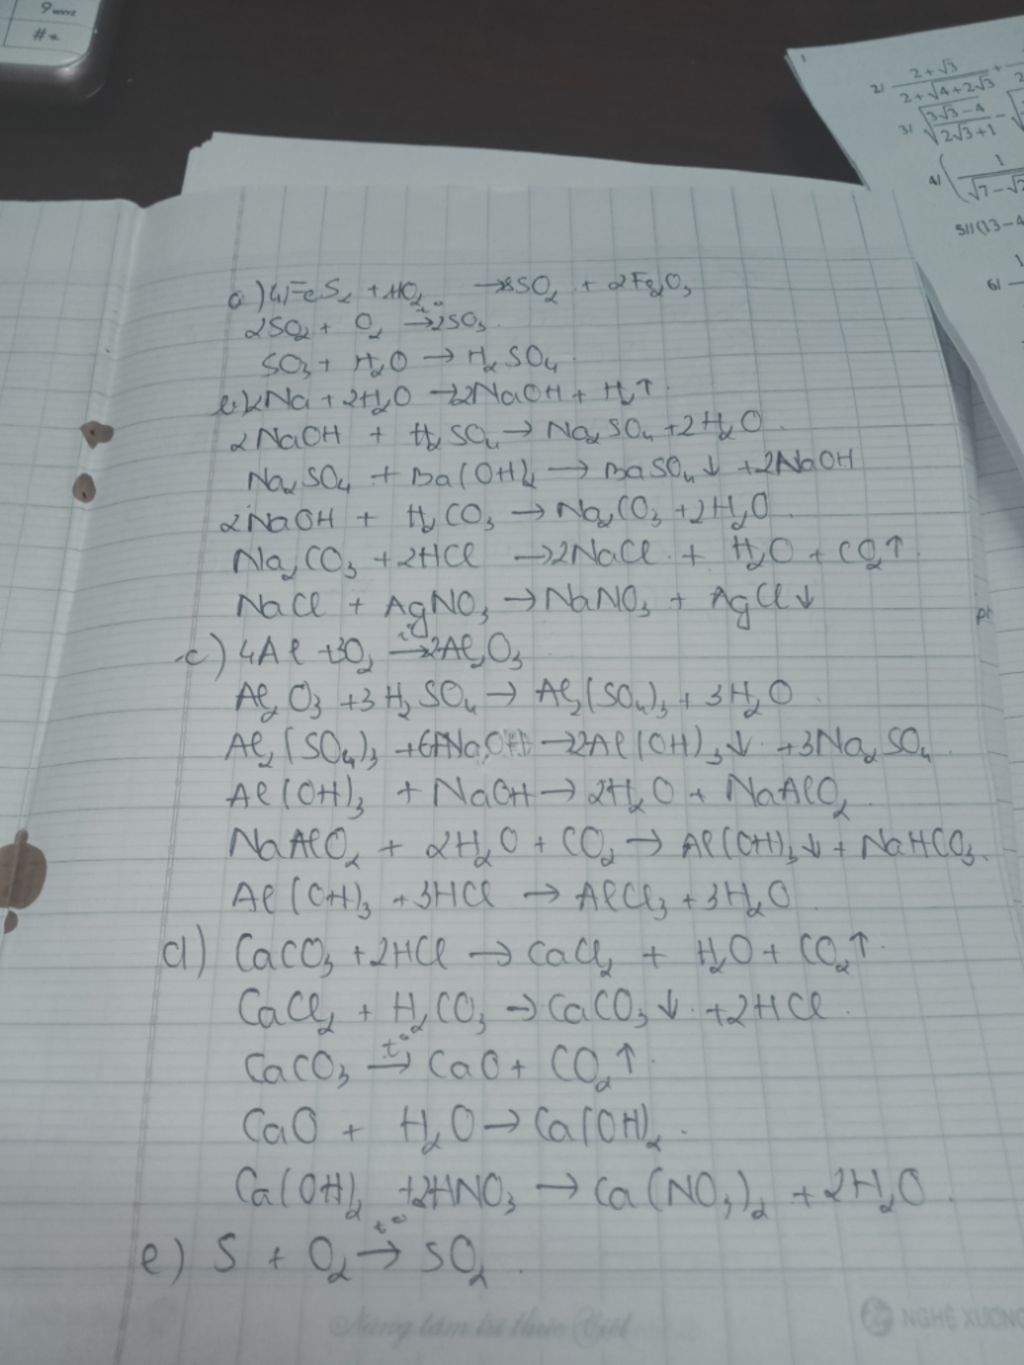 9 wxyz
#
2/ 2+√3 / 2+√4+2√3 +
3/ √3√3-4 / 2√3+1 -
4/ ( 1 / √7-√2
5/ (13-4
6/ 1
a) 4FeS₂ + 11O₂ → 8SO₂ + 2Fe₂O₃
2SO₂ + O₂ t°→ 2SO₃.
SO₃ + H₂O → H₂SO₄.
2Na + 2H₂O → 2NaOH + H₂↑.
2NaOH + H₂SO₄ → Na₂SO₄ + 2H₂O.
Na₂SO₄ + Ba(OH)₂ → BaSO₄↓ + 2NaOH
2NaOH + H₂CO₃ → Na₂CO₃ + 2H₂O.
Na₂CO₃ + 2HCl → 2NaCl + H₂O + CO₂↑.
NaCl + AgNO₃ → NaNO₃ + AgCl↓
c) 4Al + 3O₂ t°→ 2Al₂O₃
Al₂O₃ + 3H₂SO₄ → Al₂(SO₄)₃ + 3H₂O.
Al₂(SO₄)₃ + 6NaOH → 2Al(OH)₃↓ + 3Na₂SO₄
Al(OH)₃ + NaOH → 2H₂O + NaAlO₂.
NaAlO₂ + 2H₂O + CO₂ → Al(OH)₃↓ + NaHCO₃.
Al(OH)₃ + 3HCl → AlCl₃ + 3H₂O.
d) CaCO₃ + 2HCl → CaCl₂ + H₂O + CO₂↑.
CaCl₂ + H₂CO₃ → CaCO₃↓ + 2HCl.
CaCO₃ t°→ CaO + CO₂↑.
CaO + H₂O → Ca(OH)₂.
Ca(OH)₂ + 2HNO₃ → Ca(NO₃)₂ + 2H₂O.
e) S + O₂ t°→ SO₂.
NGHỆ XUONG